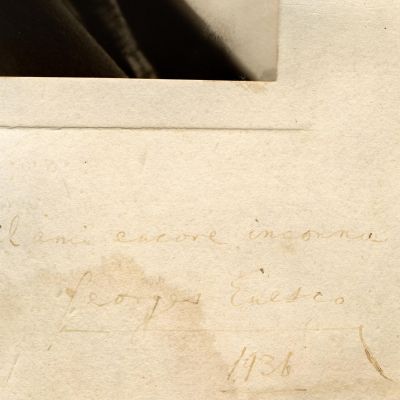 l'ami encore inconnu
Georges Enesco
1936